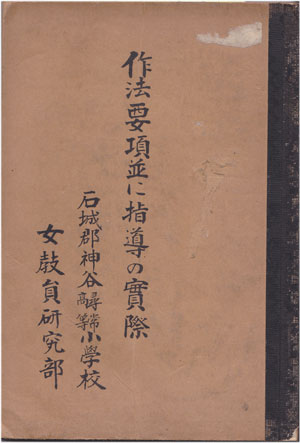 作法要項並に指導の實際
石城郡神谷尋常高等小學校
女教員研究部